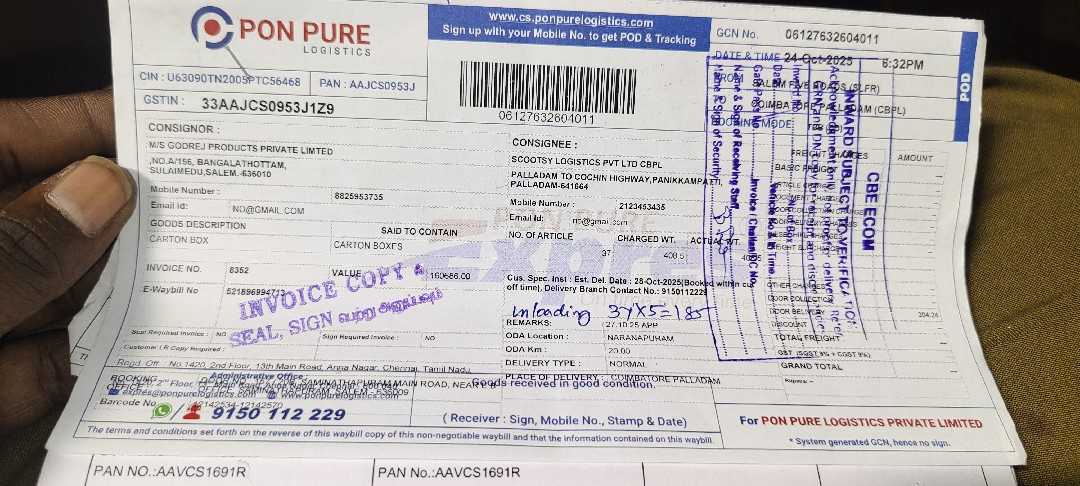 PON PURE
LOGISTICS
www.cs.ponpurelogistics.com
Sign up with your Mobile No. to get POD & Tracking
GCN No. 06127632604011
DATE & TIME 24-Oct-2025 6:32PM
POD
CIN : U63090TN2005PTC56468 PAN : AAJCS0953J
GSTIN : 33AAJCS0953J1Z9
06127632604011
FROM SALEM FIVE ROADS (SLFR)
COIMBATORE PALLADAM (CBPL)
BOOKING MODE
CONSIGNOR :
M/S GODREJ PRODUCTS PRIVATE LIMTED
,NO.A/156, BANGALATHOTTAM,
SULAIMEDU,SALEM.-636010
Mobile Number : 8825953735
Email Id: NO@GMAIL.COM
GOODS DESCRIPTION SAID TO CONTAIN
CARTON BOX CARTON BOXES
INVOICE NO. 8352 VALUE 160686.00
E-Waybill No
INVOICE COPY &
SEAL, SIGN
Seal Required Invoice : NO Sign Required Invoice : NO
Customer LR Copy Required :
CONSIGNEE :
SCOOTSY LOGISTICS PVT LTD CBPL
PALLADAM TO COCHIN HIGHWAY,PANIKKAMPATTI,
PALLADAM-641664
Mobile Number : 2123453435
Email Id: no@gmail.com
NO. OF ARTICLE CHARGED WT. ACTUAL WT.
37 400.5
PON PURE
Express
Cus. Spec. Inst : Est. Del. Date : 28-Oct-2025(Booked within cut
off time), Delivery Branch Contact No.: 9150112229
unloading 37X5=185
REMARKS: 27.10.25 APP
ODA Location : NARANAPURAM
ODA Km : 20.00
DELIVERY TYPE : NORMAL
PLACE OF DELIVERY : COIMBATORE PALLADAM
Goods received in good condition.
FREIGHT CHARGES AMOUNT
BASIC FREIGHT
OTHER CHARGES
DOOR COLLECTION
DOOR DELIVERY 204.24
DISCOUNT
TOTAL FREIGHT
GST (SGST 9% + CGST 9%)
GRAND TOTAL
Rupees: -
CBE ECOM
INWARD SUBJECT TO VERIFICATION
Invoice / Challan / DC No.
Gate Pass No.
Name & Sign of Receiving Staff
Name & Sign of Security
Regd. Off. : No.1420, 2nd Floor, 13th Main Road, Anna Nagar, Chennai, Tamil Nadu,
Administrative Office :
express@ponpurelogistics.com www.ponpurelogistics.com
Barcode No. 42142534-12142570
9150 112 229
( Receiver : Sign, Mobile No., Stamp & Date)
For PON PURE LOGISTICS PRIVATE LIMITED
* System generated GCN, hence no sign.
The terms and conditions set forth on the reverse of this waybill copy of this non-negotiable waybill and that the information contained on this waybill.
PAN NO.:AAVCS1691R PAN No.:AAVCS1691R